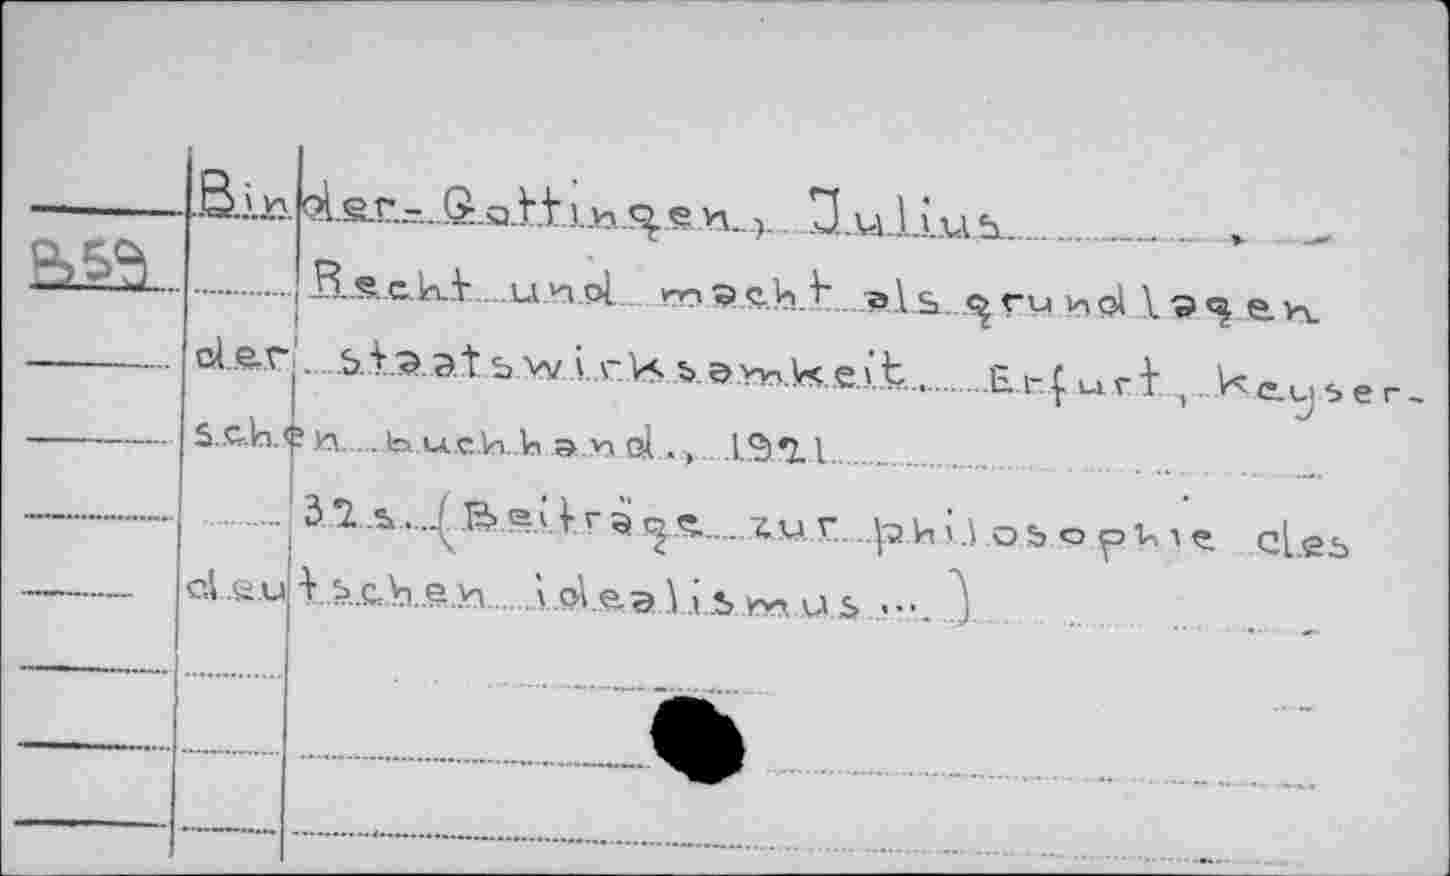 Binder-Gottingen, Julius
B59
Recht und macht als grundlagen
der staatswirksamkeit. Erfurt, Keyser-
schen buchhandl., 1921
32 s. (Beiträge zur philosophie des
deutschen idealismus ... )